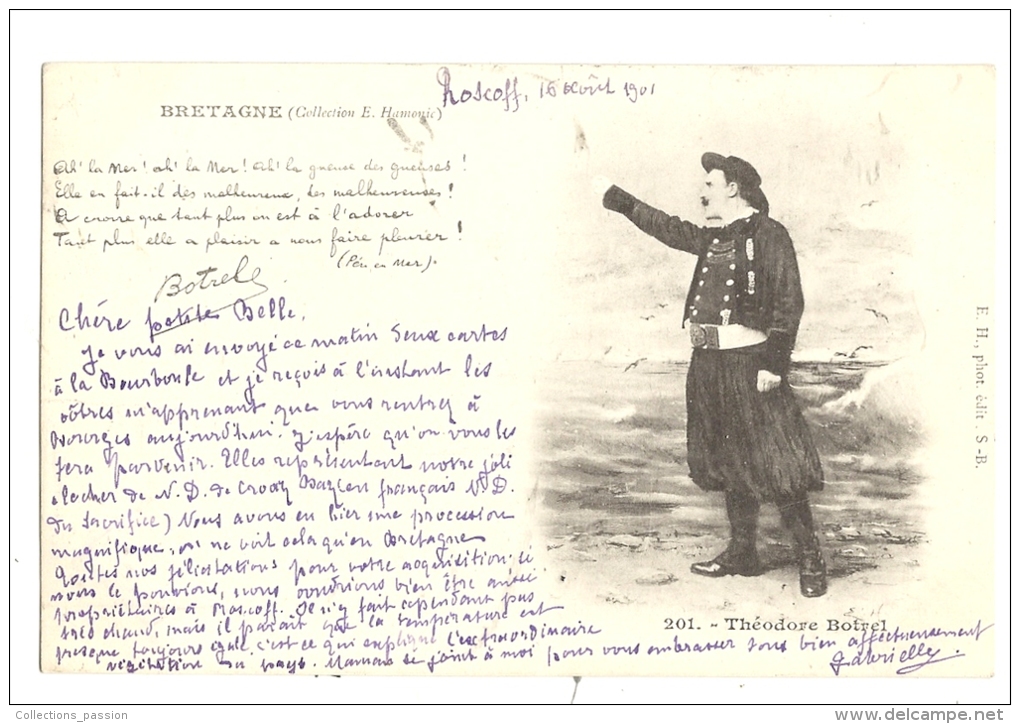 Roscoff, 16 Août 1901
BRETAGNE (Collection E. Hamonic)
Ah! la Mer! ah! la Mer! Ah! la gueuse des gueuses!
Elle en fait-il des malheureux, des malheureuses!
A croire que tant plus on est à l'adorer
Tant plus elle a plaisir a nous faire pleurer!
(Péri en Mer).
Botrel
Chère petite Belle,
Je vous ai envoyé ce matin deux cartes
à la Bourboule et je reçois à l'instant les
vôtres m'apprenant que vous rentrez à
Bourges aujourd'hui. J'espère qu'on vous les
fera parvenir. Elles représentant notre joli
clocher de N. D. de Croaz Baz (en français N. D.
du Sacrifice) Nous avons eu hier une procession
magnifique, on ne voit cela qu'en Bretagne
Toutes nos félicitations pour votre acquisition; si
nous le pouvions, nous voudrions bien être aussi
propriétaires à Roscoff. Il n'y fait cependant pas
très chaud, mais il paraît que la température est
presque toujours égale, c'est ce qui explique l'extraordinaire
végétation du pays. Maman se joint à moi pour vous embrasser tous bien affectueusement
Gabrielle.
201. - Théodore Botrel
E. H., phot. édit. S.-B.
Collections_passion
www.delcampe.net